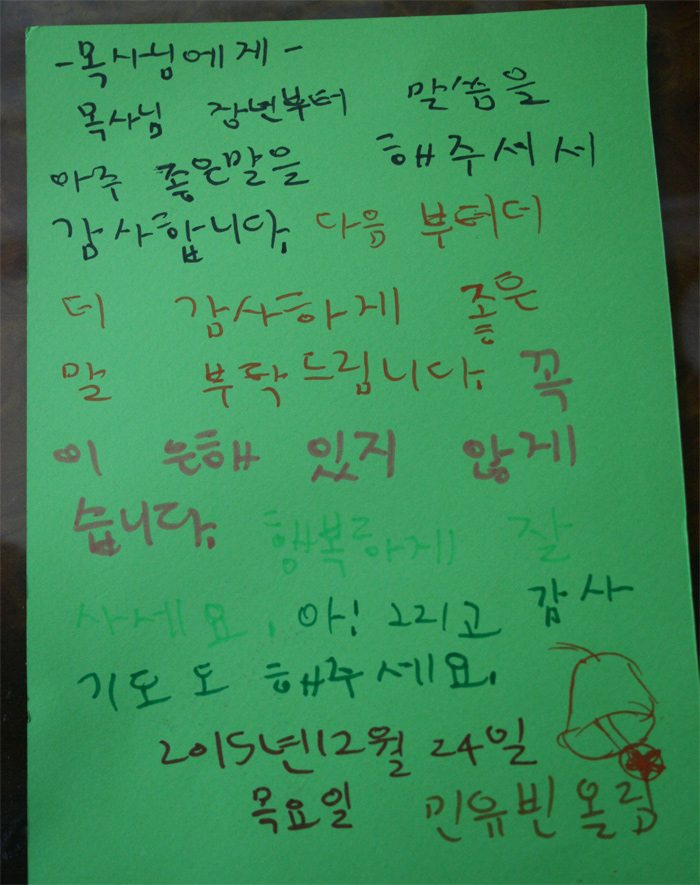 -목사님에게-
목사님 장년부터 말씀을
아주 좋은말을 해주셔서
감사합니다. 다음 부터더
더 감사하게 좋은
말 부탁드립니다. 꼭
이 은해 있지 않게
습니다. 행복하게 잘
사세요. 아! 그리고 감사
기도도 해주세요.
2015년12월 24일
목요일 민유빈올림